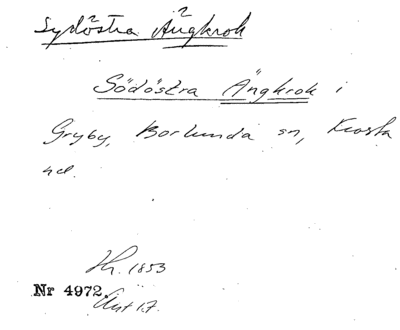 Sydöstra Ängkrok
Södöstra Ängkrok i
Gryby, Borlunda sn, Frosta
hd.
Hh. 1853
Nr 4972
Akt 17.